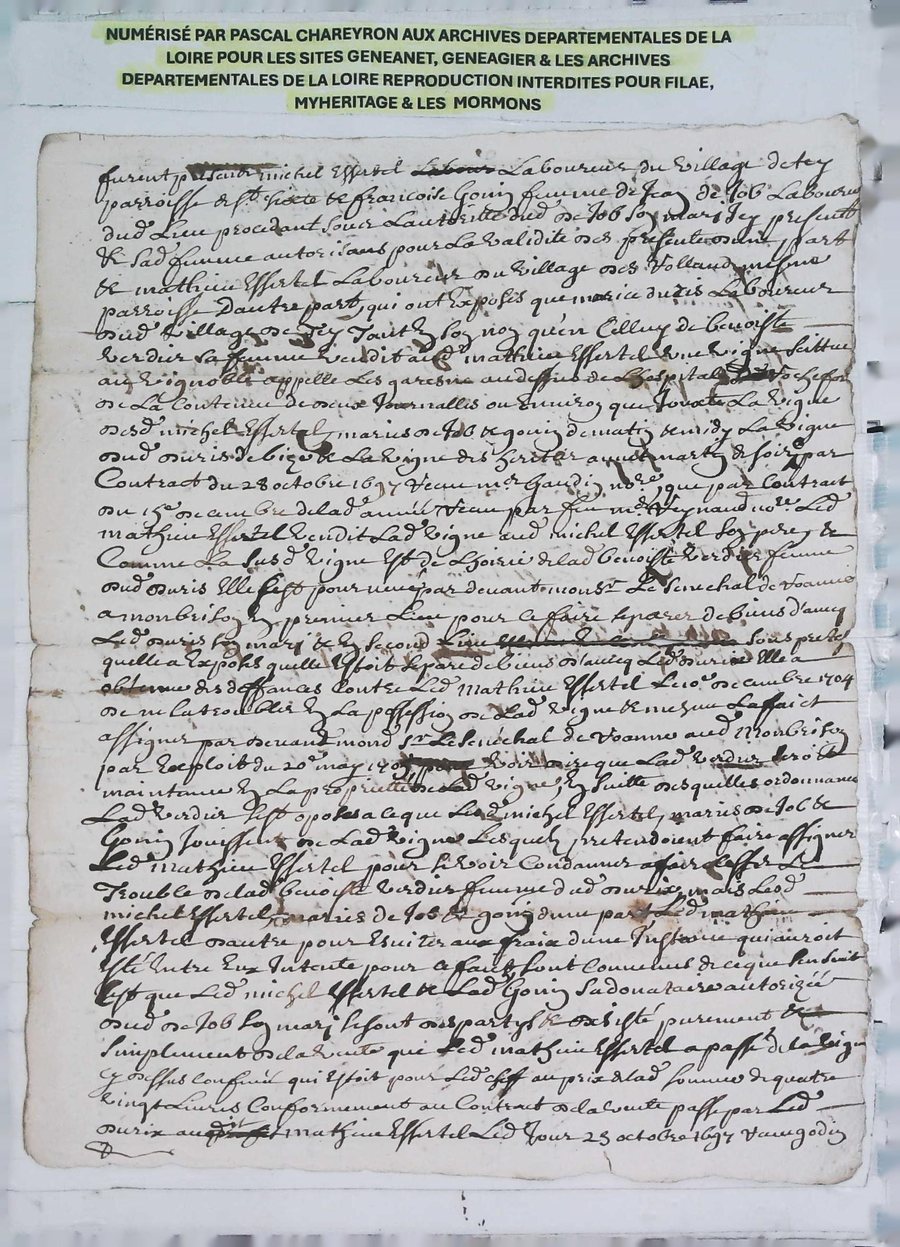 NUMÉRISÉ PAR PASCAL CHAREYRON AUX ARCHIVES DEPARTEMENTALES DE LA
LOIRE POUR LES SITES GENEANET, GENEAGIER & LES ARCHIVES
DEPARTEMENTALES DE LA LOIRE REPRODUCTION INTERDITES POUR FILAE,
MYHERITAGE & LES MORMONS
furent presents michel Essertel Laboureur du village de
parroisse de st & francoise Gonin femme de Jean de Job Laboureur
dud Lieu procedant soubs Lautorite dud de Job son mary Icy present
& sad femme autorisans pour La validite des presente dune part
& mathieu Essertel Laboureur du village des mesme
parroisse Dautre part, qui ont Exposes que marie duris Laboureur
dud village de tant En son nom qu'en Celluy de benoiste
verdier sa femme vendit aud mathieu Essertel une vigne scittue
au vignoble appelle Les garesne audessus de Lhospital
de La Contenue de deux Journallis ou Environ que Jouxte La vigne
desd michel Essertel, maries de Job & gonin de matin & midy La vigne
dud duris de bize & La vigne des heritiers martin de soir, par
Contract du 28 octobre 1697 receu mre Gaudin nore, que par Contract
du 15e decembre delad année receu par feu me Reynaud nore Led
mathieu Essertel vendit Lad vigne aud michel Essertel son pere &
Comme La susd vigne Est de Lhoirie delad benoiste verdier femme
dud duris Elle sest pourveue par devant monsr Le Senechal de roanne
a monbrison En premier Lieu pour se faire separer de biens d'avecq
Led duris son mary & En second sous pretexte
quelle a Exposes quelle Estoit separe de biens d'avecq Led duris Elle a
obtenue des deffances Contre Led mathieu Essertel Le decembre 1704
de ne La troubler En La possession de Lad vigne & mesme La faict
assigner par devant mond sr Le Senechal de roanne aud Monbrison
par Exploit du 20e may voir dire que Lad verdier seroit
maintenue En La proprietté de Lad vigne, En suitte desquelles ordonnances
Lad verdier sest oposes a ce que Lesd michel Essertel, maries de Job &
Gonin Jouissent de Lad vigne Lesquels pretendoient faire assigner
Led mathieu Essertel pour se voir Condanner a faire Cesser Le
Trouble de lad benoiste verdier femme dud duris, mais Lesd
michel Essertel, maries de Job & gonin dune part Led mathieu
Essertel dautre pour Esviter aux fraix dune Instance qui auroit
Esté Entre Eux Intentée pour ce faict sont Convenus de ce que sensuit
Cest que Led michel Essertel & Lad Gonin sa donataire autorizée
dud de Job son mary se sont despartys & desisté purement &
simplement de la vente que Led mathieu Essertel a passé de la vigne
cy dessus Confinée qui Estoit pour Led chef au prix de lad somme de quatre
vingt Livres Conformement au Contract de la vente passe par Led
durix aud mathieu Essertel Led Jour 28 octobre 1697 receu godin